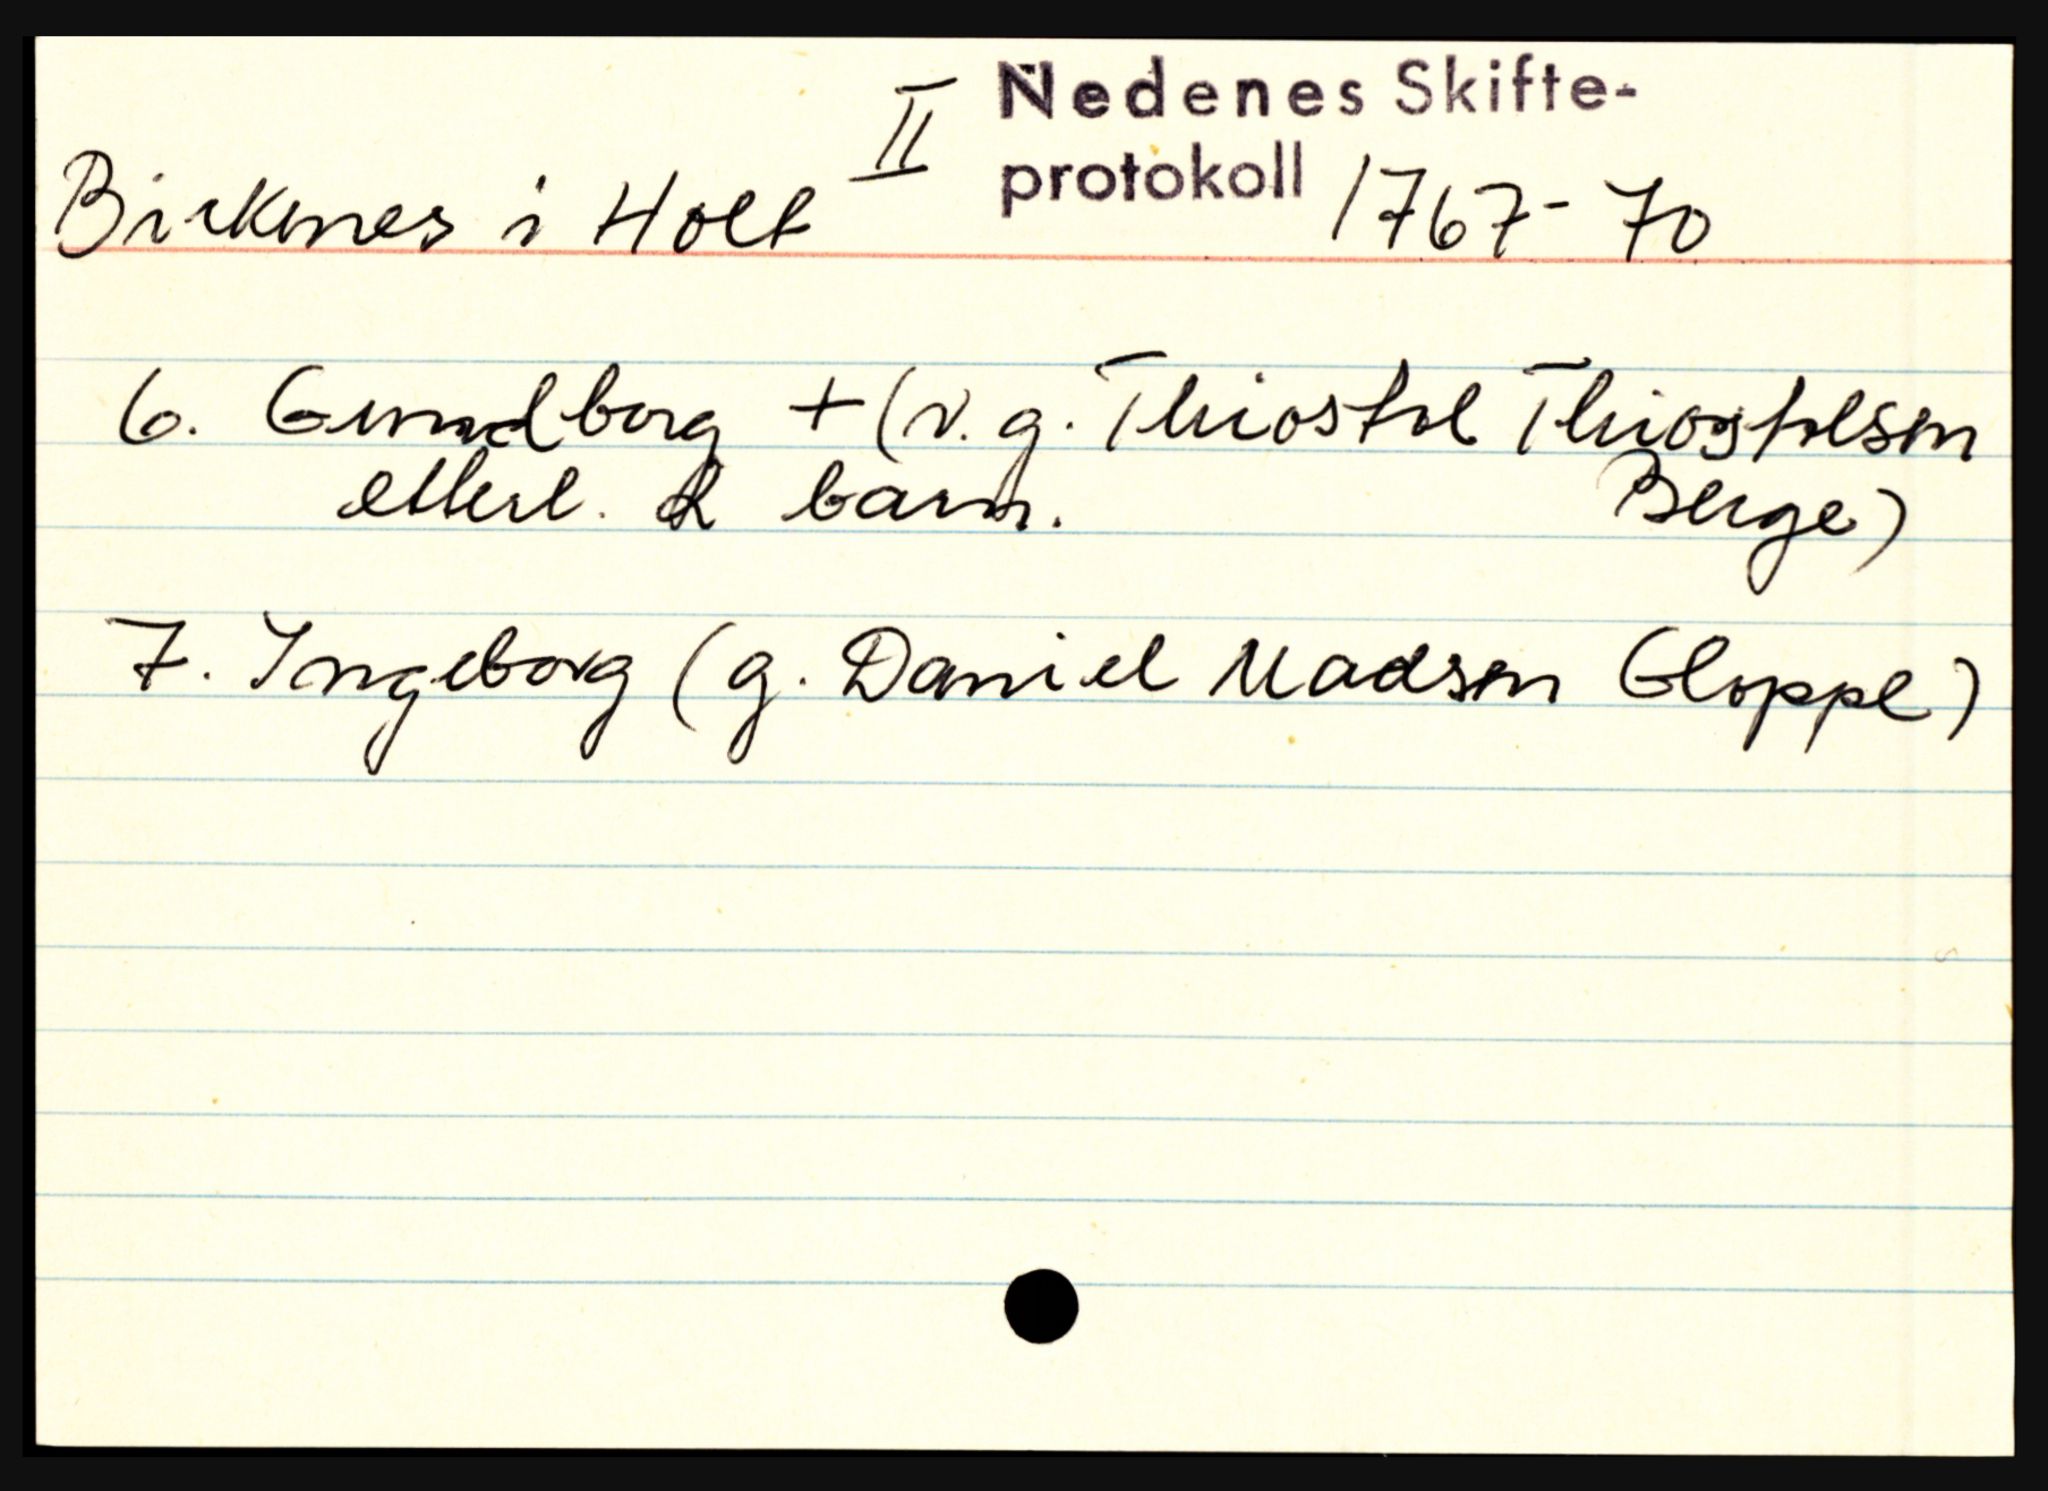 II Nedenes Skifte-
Birkenes i Holt protokoll 1767-70
6. Gundborg + (v. g. Thiostol Thiostolsen
etterl. 2 barn. Berge)
7. Ingeborg (g. Daniel Madsen Gloppe)